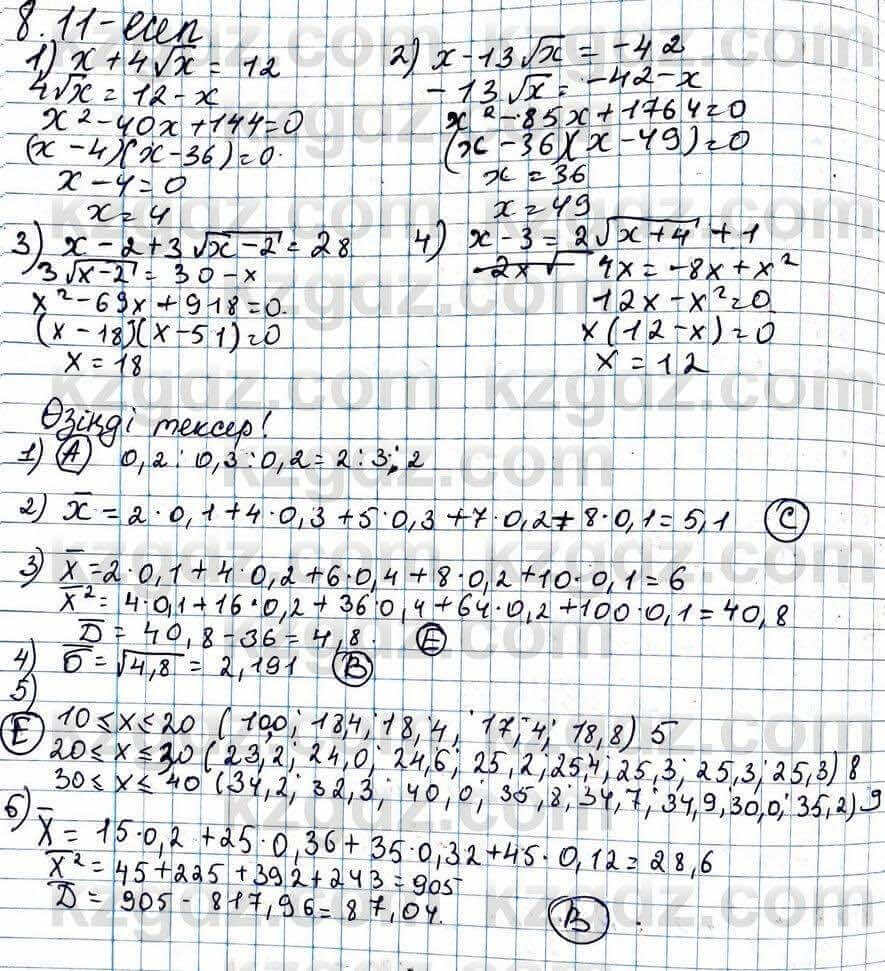 8.11-есеп
1) x + 4√x = 12
4√x = 12 - x
x² - 40x + 144 = 0
(x - 4)(x - 36) = 0.
x - 4 = 0
x = 4
2) x - 13√x = -42
-13√x = -42 - x
x² - 85x + 1764 = 0
(x - 36)(x - 49) = 0
x = 36
x = 49
3) x - 2 + 3√x-2 = 28
3√x-2 = 30 - x
x² - 69x + 918 = 0.
(x - 18)(x - 51) = 0
x = 18
4) x - 3 = 2√x+4 + 1
4x = -8x + x²
12x - x² = 0
x(12 - x) = 0
x = 12
Өзіңді тексер!
1) A) 0,2 : 0,3 : 0,2 = 2 : 3 : 2
2) x̅ = 2·0,1 + 4·0,3 + 5·0,3 + 7·0,2 + 8·0,1 = 5,1 C
3) x̅ = 2·0,1 + 4·0,2 + 6·0,4 + 8·0,2 + 10·0,1 = 6
x̅² = 4·0,1 + 16·0,2 + 36·0,4 + 64·0,2 + 100·0,1 = 40,8
D̅ = 40,8 - 36 = 4,8. E
4) б̅ = √4,8 = 2,191 B
5)
E 10 ≤ x ≤ 20 (10,0; 18,4; 18,4; 17,4; 18,8) 5
20 ≤ x ≤ 30 (23,2; 24,0; 24,6; 25,2; 25,4; 25,3; 25,3; 25,3) 8
30 ≤ x ≤ 40 (34,2; 32,3; 40,0; 35,8; 34,7; 34,9; 30,0; 35,2) 9
6) X̅ = 15·0,2 + 25·0,36 + 35·0,32 + 45·0,12 = 28,6
X̅² = 45 + 225 + 392 + 243 = 905
D̅ = 905 - 817,96 = 87,04.
B
kzgdz.com